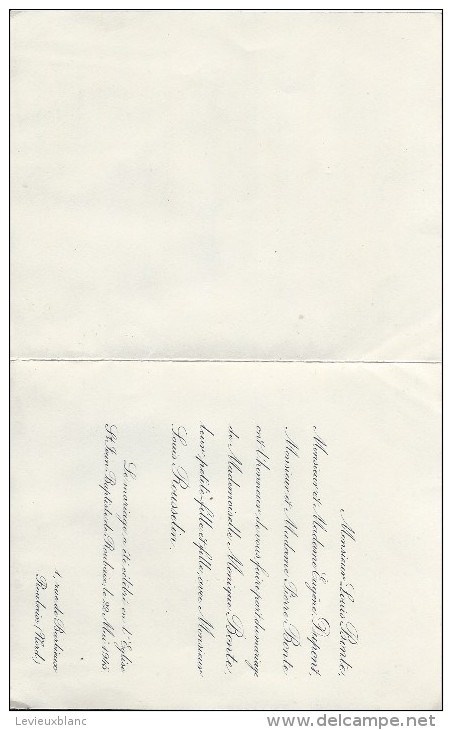 Monsieur Louis Bonte,
Monsieur et Madame Eugène Dupont,
Monsieur et Madame Pierre Bonte
ont l'honneur de vous faire part du mariage
de Mademoiselle Monique Bonte,
leur petite-fille et fille, avec Monsieur
Louis Rousselin.
Le mariage a été célébré en l'Eglise
St Jean Baptiste de Roubaix, le 22 Mai 1945
1, rue de Barbieux
Roubaix (Nord)
Levieuxblanc
www.delcampe.net